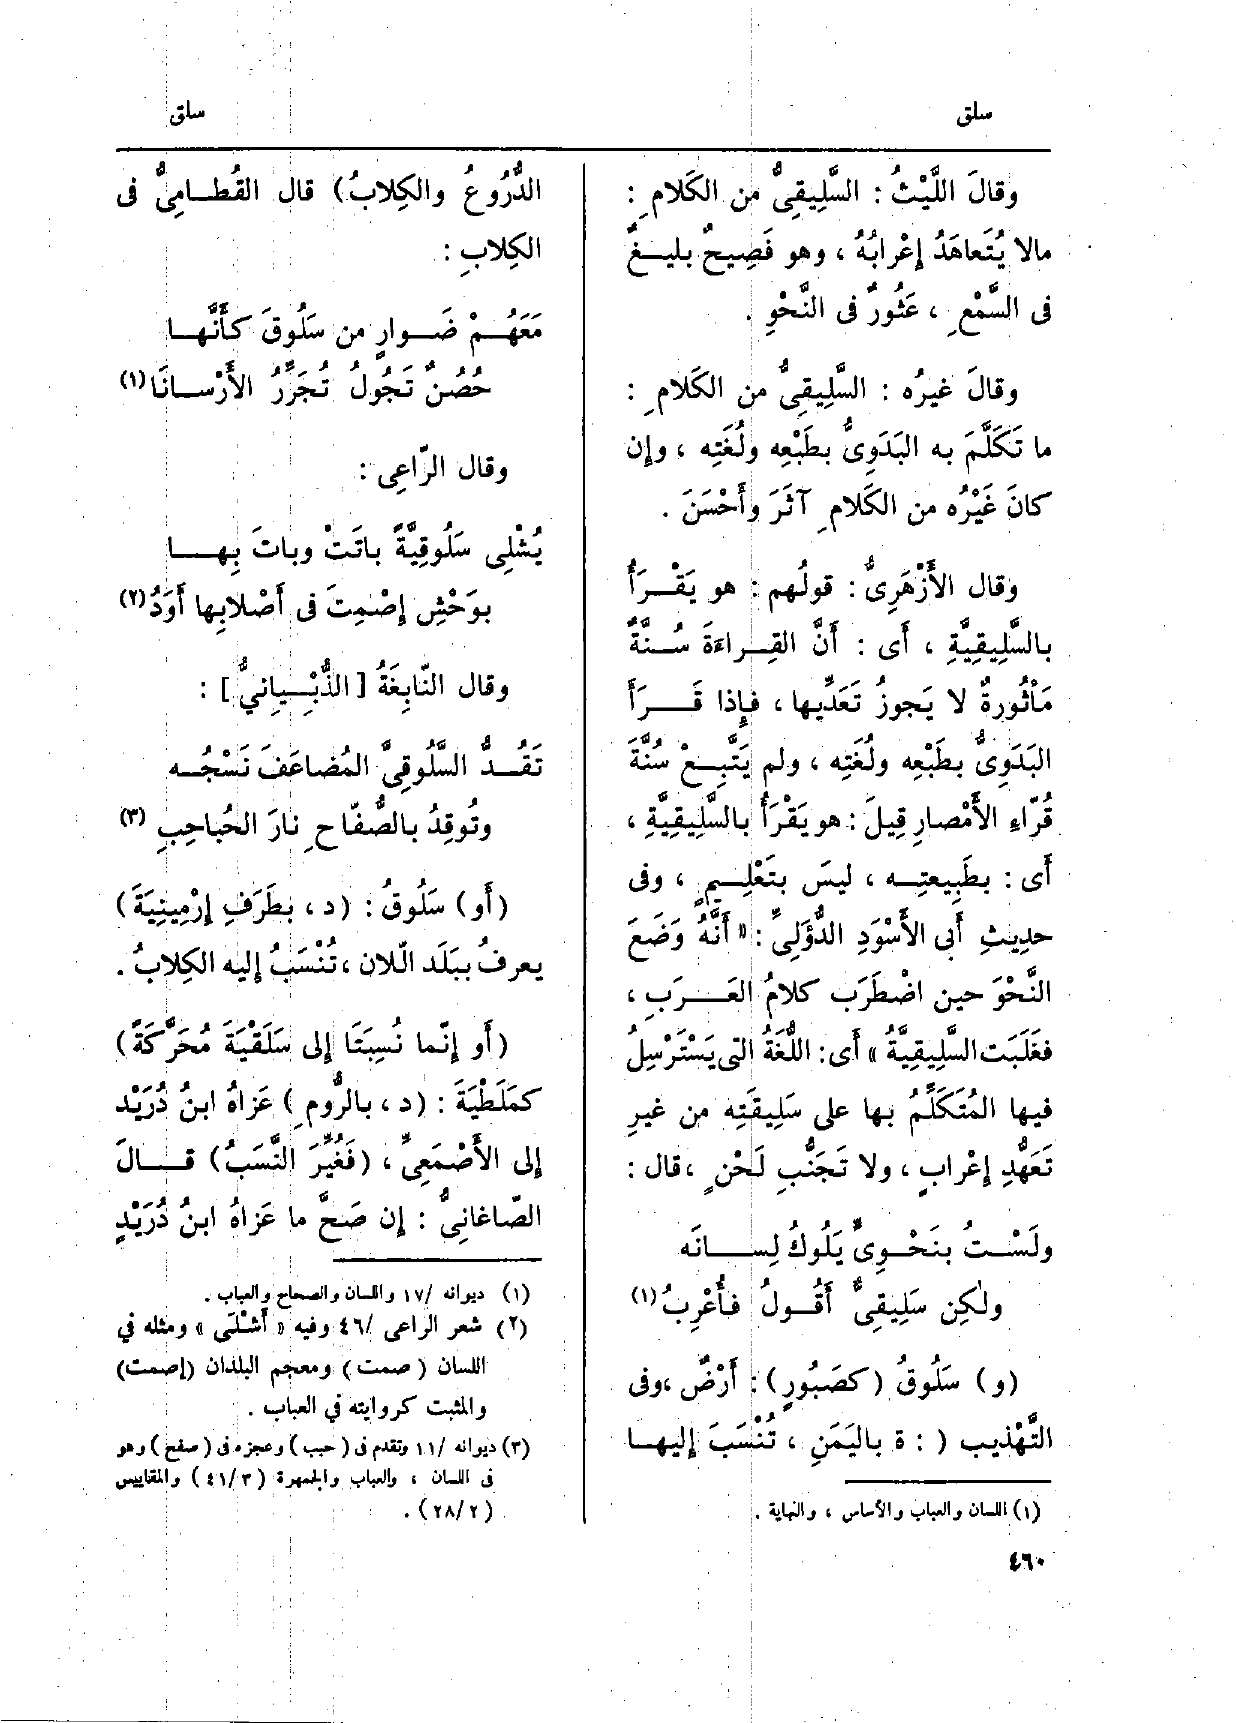 سلق
سلق
وقالَ اللَّيْثُ : السَّلِيقِىُّ من الكَلامِ :
مالا يُتَعاهَدُ إعْرابُهُ ، وهو فَصِيحٌ بليــغٌ
فى السَّمْعِ ، عَثُورٌ فى النَّحْوِ .
وقالَ غيرُه : السَّلِيقِىُّ من الكَلامِ :
ما تَكَلَّمَ به البَدَوِىُّ بطَبْعِه ولُغَتِه ، وإن
كانَ غَيْرُه من الكَلامِ آثَرَ وأَحْسَنَ .
وقال الأَزْهَرِىُّ : قولُهم : هو يَقْــرَأُ
بالسَّلِيقِيَّةِ ، أى : أَنَّ القِــراءَةَ سُــنَّةٌ
مَأْثُورةٌ لا يَجوزُ تَعَدِّيها ، فإِذا قَــرَأَ
البَدَوِىُّ بطَبْعِه ولُغَتِه ، ولم يَتَّبِــعْ سُنَّةَ
قُرّاءِ الأَمْصارِ قِيلَ : هو يَقْرَأُ بالسَّلِيقِيَّةِ ،
أى : بطَبِيعتِــه ، ليسَ بتَعْلِــيمٍ ، وفى
حديثِ أَبى الأَسْوَدِ الدُّؤَلِىِّ : « أَنَّهُ وَضَعَ
النَّحْوَ حين اضْطَرَب كلامُ العَــرَبِ ،
فغَلَبَت السَّلِيقِيَّةُ » أى : اللُّغَةُ التى يَسْتَرْسِلُ
فيها المُتَكَلِّمُ بها على سَلِيقَتِه من غيرِ
تَعَهُّدِ إعْرابٍ ، ولا تَجَنُّبِ لَحْنٍ ، قال :
ولَسْــتُ بنَحْــوِىٍّ يَلُوكُ لِســانَه
ولكِن سَلِيقِىٌّ أَقُــولُ فــأُعْرِبُ (١)
(و) سَلُوقُ (كصَبُورٍ) : أَرْضٌ ، وفى
التَّهْذِيب ( : ة باليَمَنِ ، تُنْسَبُ إليهــا
(١) اللسان والعباب والأساس ، والنهاية .
٤٦٠
الدُّرُوعُ والكِلابُ) قال القُطــامِىُّ فى
الكِلابِ :
مَعَهُــمْ ضَــوارٍ من سَلُوقَ كــأَنَّهــا
حُصُنٌ تَجُولُ تُجَرِّرُ الأَرْســانَا (١)
وقال الرّاعِى :
يُشْلِى سَلُوقِيَّةً باتَتْ وباتَ بِهــا
بوَحْشِ إصْمِتَ فى أَصْلابِها أَوَدُ (٢)
وقال النّابِغَةُ [ الذُّبْــيانِيُّ ] :
تَقُــدُّ السَّلُوقِىَّ المُضاعَفَ نَسْجُــه
وتُوقِدُ بالصُّفّاحِ نارَ الحُباحِبِ (٣)
(أَو) سَلُوقُ : (د ، بطَرَفِ إرْمِينِيَةَ)
يعرفُ ببَلَد الّلان ، تُنْسَبُ إليه الكِلابُ .
(أَو إنّما نُسِبَتَا إلى سَلَقْيَةَ مُحَرَّكَةً)
كمَلَطْيَةَ : (د ، بالرُّومِ) عَزاهُ ابنُ دُرَيْد
إلى الأَصْمَعِىِّ ، (فَغُيِّرَ النَّسَبُ) قــالَ
الصّاغانِىُّ : إن صَحَّ ما عَزاهُ ابنُ دُرَيْدٍ
(١) ديوانه /١٧ واللسان والصحاح والعباب .
(٢) شعر الراعى /٤٦ وفيه « أَشْلَى » ومثله في
اللسان (صمت) ومعجم البلدان (إصمت)
والمثبت كروايته في العباب .
(٣) ديوانه /١١ وتقدم فى (حبب) وعجزه فى (صفح) وهو
فى اللسان ، والعباب والجمهرة (٤١/٣) والمقاييس
(٢٨/٢) .